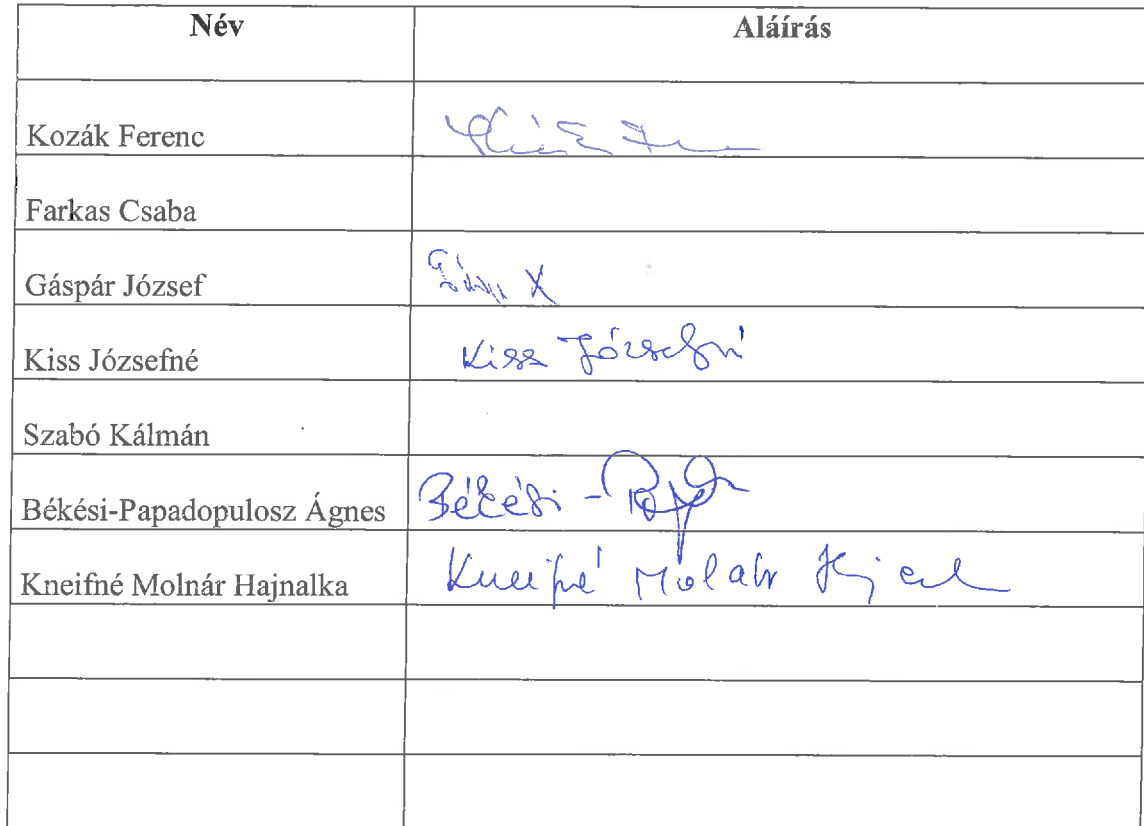 Név Aláírás
Kozák Ferenc
Farkas Csaba
Gáspár József
Kiss Józsefné Kiss Józsefné
Szabó Kálmán
Békési-Papadopulosz Ágnes Békési-
Kneifné Molnár Hajnalka Kneifné Molnár